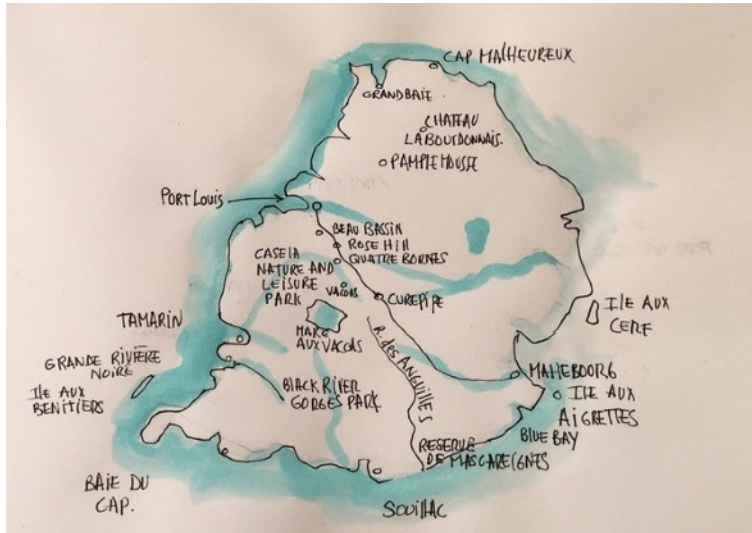 CAP MALHEUREUX
GRANDBAIE
CHATEAU
LABOURDONNAIS.
PAMPLEMOUSSE
PORT LOUIS
BEAU BASSIN
ROSE HILL
QUATRE BORNES
CASELA
NATURE AND
LEISURE
PARK
VACOAS
CUREPIPE
ILE AUX
CERF
TAMARIN
MARE
AUX VACOAS
R. des ANGUILLES
GRANDE RIVIÈRE
NOIRE
ILE AUX
BENITIERS
BLACK RIVER
GORGES PARK
MAHEBOURG
ILE AUX
AIGRETTES
BLUE BAY
RESERVE
DE MASCAREIGNES
BAIE DU
CAP.
SOUILLAC